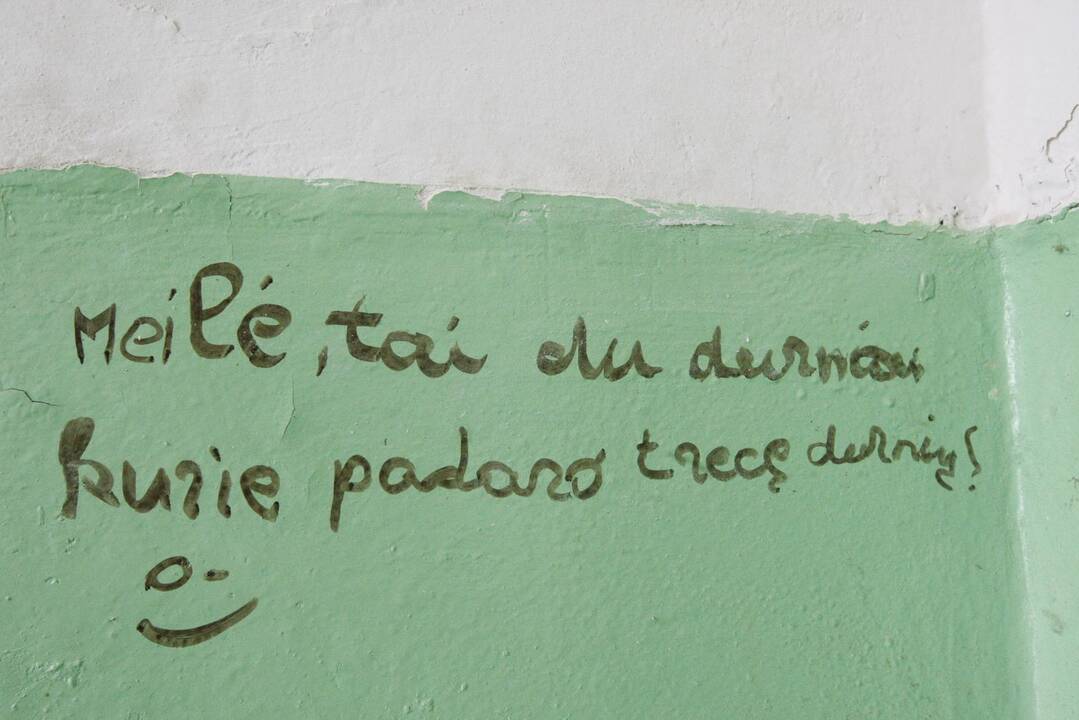 Meilė, tai du durniai
kurie padaro trečę durnių!